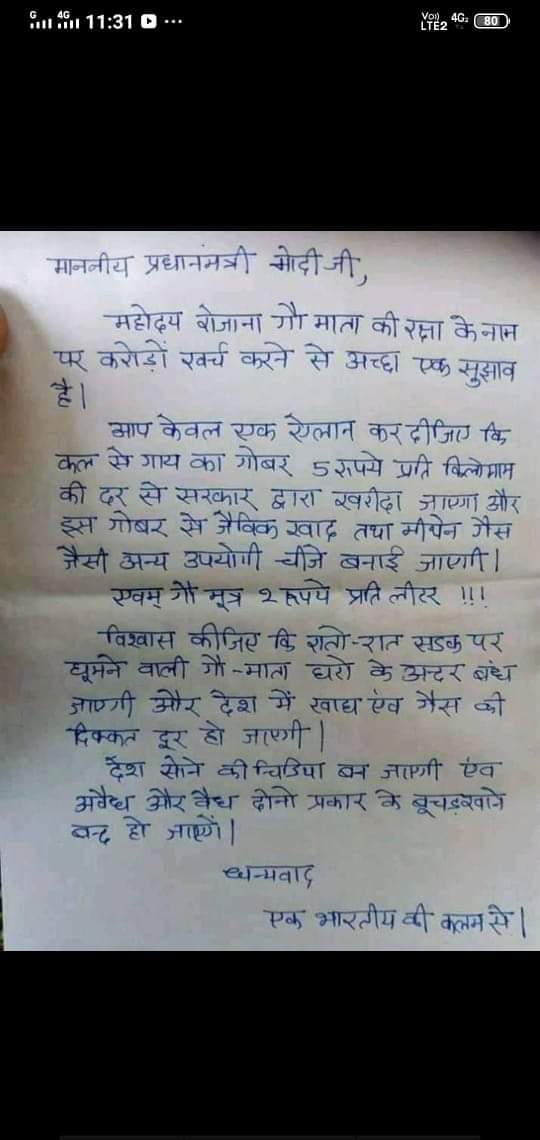 G 4G 11:31 ...
Vo) LTE2 4G 80
माननीय प्रधानमंत्री मोदी जी,
महोदय रोजाना गौ माता की रक्षा के नाम
पर करोड़ों खर्च करने से अच्छा एक सुझाव
है।
आप केवल एक ऐलान कर दीजिए कि
कल से गाय का गोबर 5 रुपये प्रति किलोग्राम
की दर से सरकार द्वारा खरीदा जाएगा और
इस गोबर से जैविक खाद तथा मीथेन गैस
जैसी अन्य उपयोगी चीजे बनाई जाएगी।
एवम् गौ मूत्र २ रूपये प्रति लीटर !!!
विश्वास कीजिए कि रातो-रात सडक पर
घूमने वाली गौ-माता घरो के अन्दर बंध
जाएगी और देश में खाद्य एंव गैस की
दिक्कत दूर हो जाएगी।
देश सोने की चिडिया बन जाएगी एंव
अवैध और वैध दोनो प्रकार के बूचड़खाने
बन्द हो जाएगें।
धन्यवाद
एक भारतीय की कलम से।